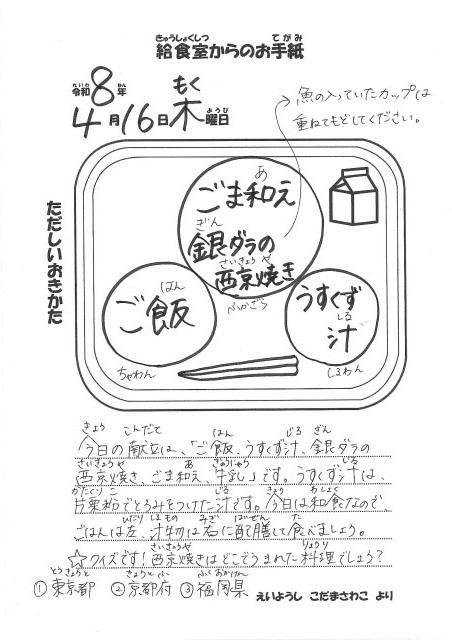 給食室からのお手紙
令和8年
4月16日木曜日
魚の入っていたカップは
重ねてもどしてください。
ただしいおきかた
ごま和え
銀ダラの
西京焼き
ふかざら
ご飯
ちゃわん
うすくず
汁
しるわん
今日の献立は、「ご飯、うすくず汁、銀ダラの
西京焼き、ごま和え、牛乳」です。うすくず汁は、
片栗粉でとろみをつけた汁です。今日は和食なので、
ごはんは左、汁物は右に配膳して食べましょう。
☆クイズです!西京焼きはどこでうまれた料理でしょう?
①東京都 ②京都府 ③福岡県
えいようし こだまさわこ より